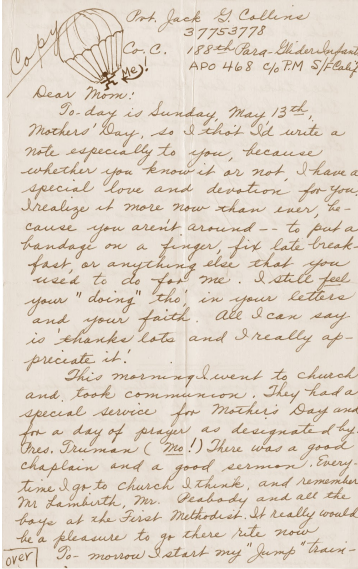 Copy
Pvt. Jack G. Collins
37753778
Co. C. 188th Para-Glider Infant
APO 468 c/o P.M S/F Calif
(Me)!
Dear Mom:
To-day is Sunday, May 13th,
Mothers' Day, so I tho't I'd write a
note especially to you, because
whether you know it or not, I have a
special love and devotion for you.
I realize it more now than ever, be-
cause you aren't around -- to put a
bandage on a finger, fix late break-
fast, or anything else that you
used to do for me. I still feel
your "doing" tho', in your letters
and your faith. All I can say
is 'thanks lots and I really ap-
preciate it.'
This morning I went to church
and took communion. They had a
special service for Mother's Day and
for a day of prayer as designated by
Pres. Truman (Mo!) There was a good
chaplain and a good sermon. Every-
time I go to church I think, and remember
Mr Lambuth, Mr. Peabody and all the
boys at the First Methodist. It really would
be a pleasure to go there rite now
To-morrow I start my "Jump" train-
over